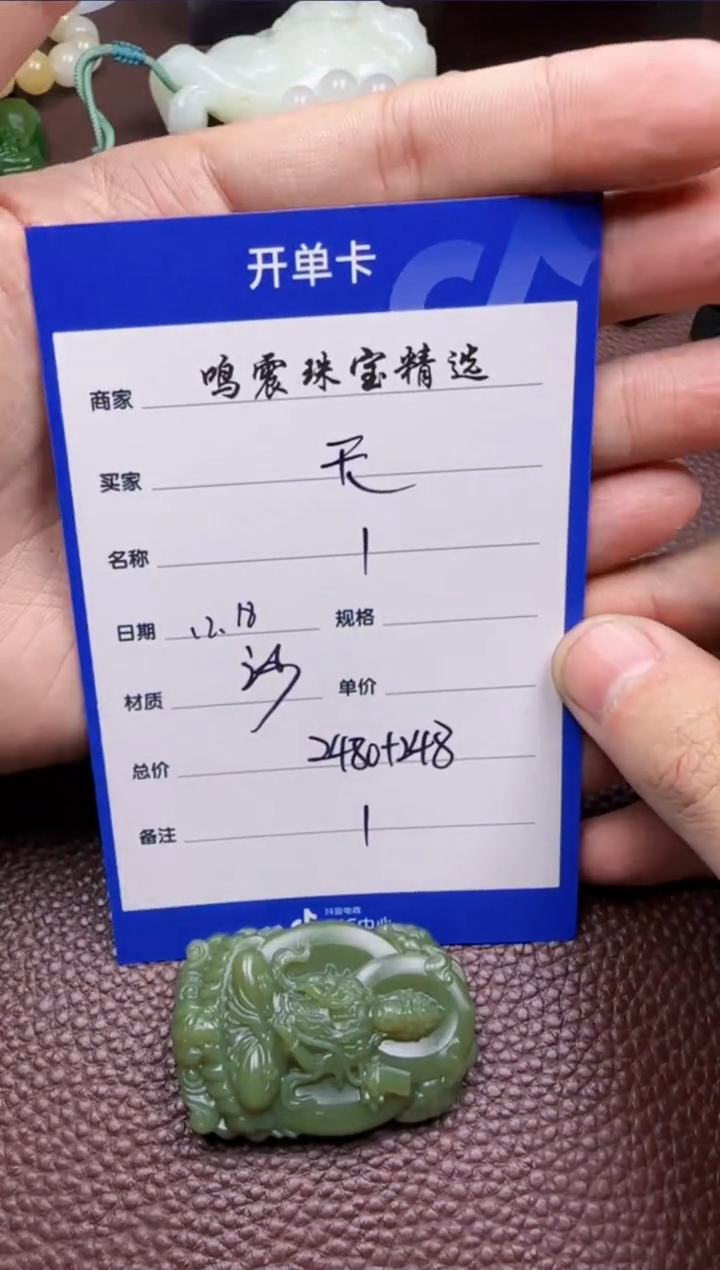 开单卡
商家 鸣震珠宝精选
买家 天
名称 1
日期 12.18 规格
材质 沙 单价
总价 2480+248
备注 1
抖音电商
中心